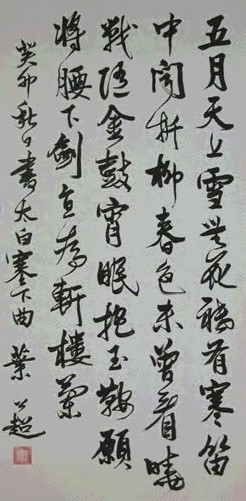 五月天山雪無花祗有寒笛
中聞折柳春色未曾看曉
戰隨金鼓宵眠抱玉鞍願
將腰下劍直為斬樓蘭
癸卯秋日書太白塞下曲 葉公超